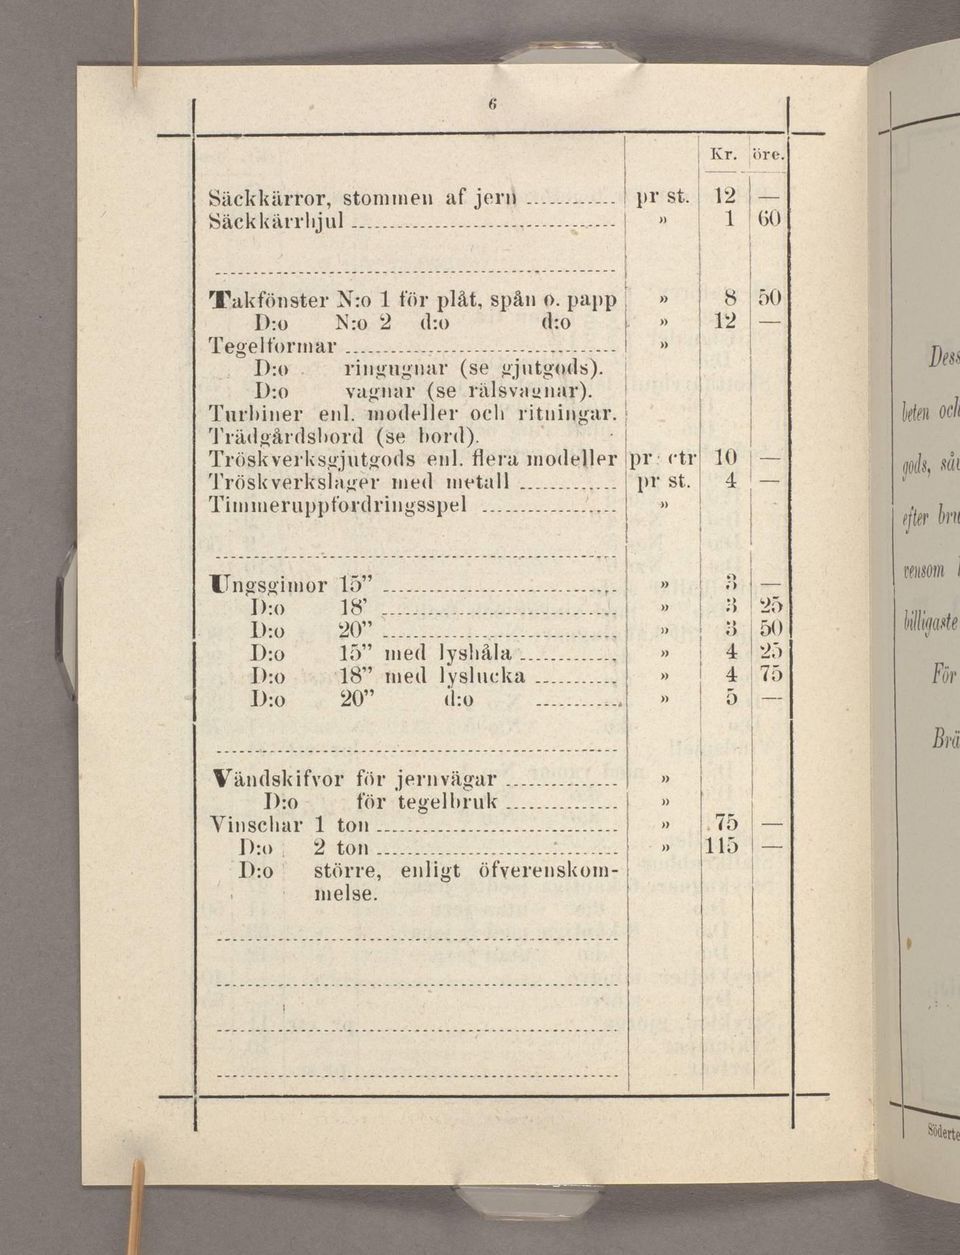 6
Kr. öre.
Säckkärror, stommen af jern pr st. 12 —
Säckkärrhjul » 1 60
Takfönster N:o 1 för plåt, spån o. papp » 8 50
D:o N:o 2 d:o d:o » 12 —
Tegelformar »
D:o ringugnar (se gjutgods).
D:o vagnar (se rälsvagnar).
Turbiner enl. modeller och ritningar.
Trädgårdsbord (se bord).
Tröskverksgjutgods enl. flera modeller pr ctr 10 —
Tröskverkslager med metall pr st. 4 —
Timmeruppfordringsspel »
Ungsgimor 15” » 3 —
D:o 18’ » 3 25
D:o 20” » 3 50
D:o 15” med lyshåla » 4 25
D:o 18” med lyslucka » 4 75
D:o 20” d:o » 5 —
Vändskifvor för jernvägar »
D:o för tegelbruk »
Vinschar 1 ton » 75 —
D:o 2 ton » 115 —
D:o större, enligt öfverenskom-
melse.
Dess
beten och
gods, så
efter bru
vensom
billigaste
För
Brä
Söderte